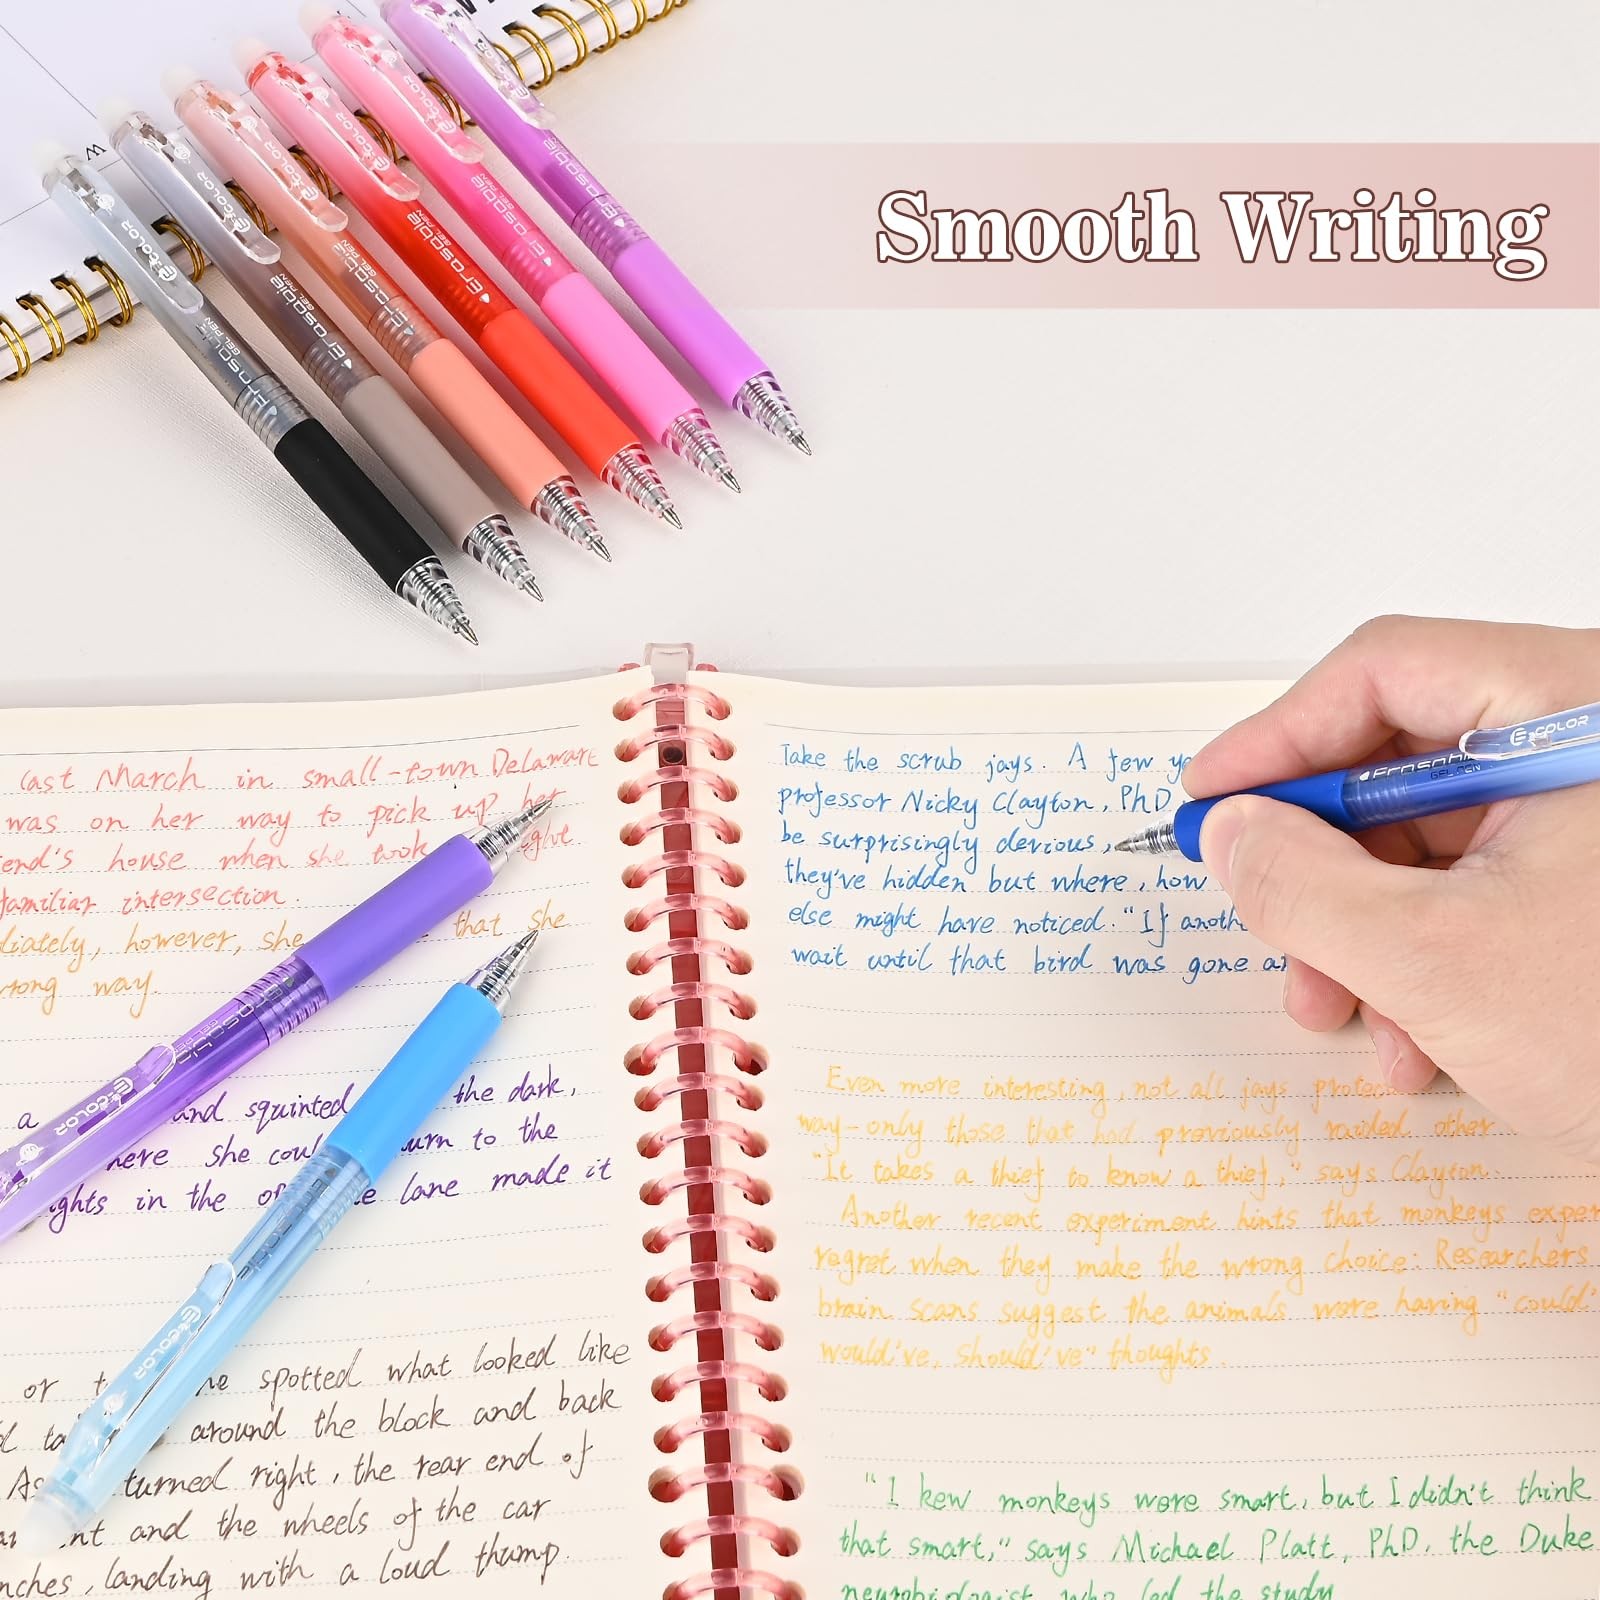 Smooth Writing
E COLOR Erasable GEL PEN
E COLOR Erasable GEL PEN
E COLOR Erasable GEL PEN
E COLOR Erasable GEL PEN
E COLOR Erasable GEL PEN
E COLOR Erasable
W
last March in small-town Delaware
was on her way to pick up her
end's house when she took
familiar intersection.
diately, however, she that she
wrong way.
a and squinted the dark,
here she coul turn to the
ights in the lane made it
or spotted what looked like
around the block and back
As turned right, the rear end of
and the wheels of the car
nches, landing with a loud thump.
E COLOR Erasable GEL PEN
E COLOR
E COLOR Erasable GEL PEN
Take the scrub jays. A few ye
professor Nicky Clayton, PhD,
be surprisingly devious,
they've hidden but where, how
else might have noticed. "If anoth
wait until that bird was gone
Even more interesting, not all jays protec
way-only those that had previously raided other
"It takes a thief to know a thief," says Clayton.
Another recent experiment hints that monkeys exper
regret when they make the wrong choice: Researchers
brain scans suggest the animals were having "could'
would've, should've" thoughts.
"I kew monkeys were smart, but I didn't think
that smart," says Michael Platt, PhD, the Duke
neurobiologist who led the study